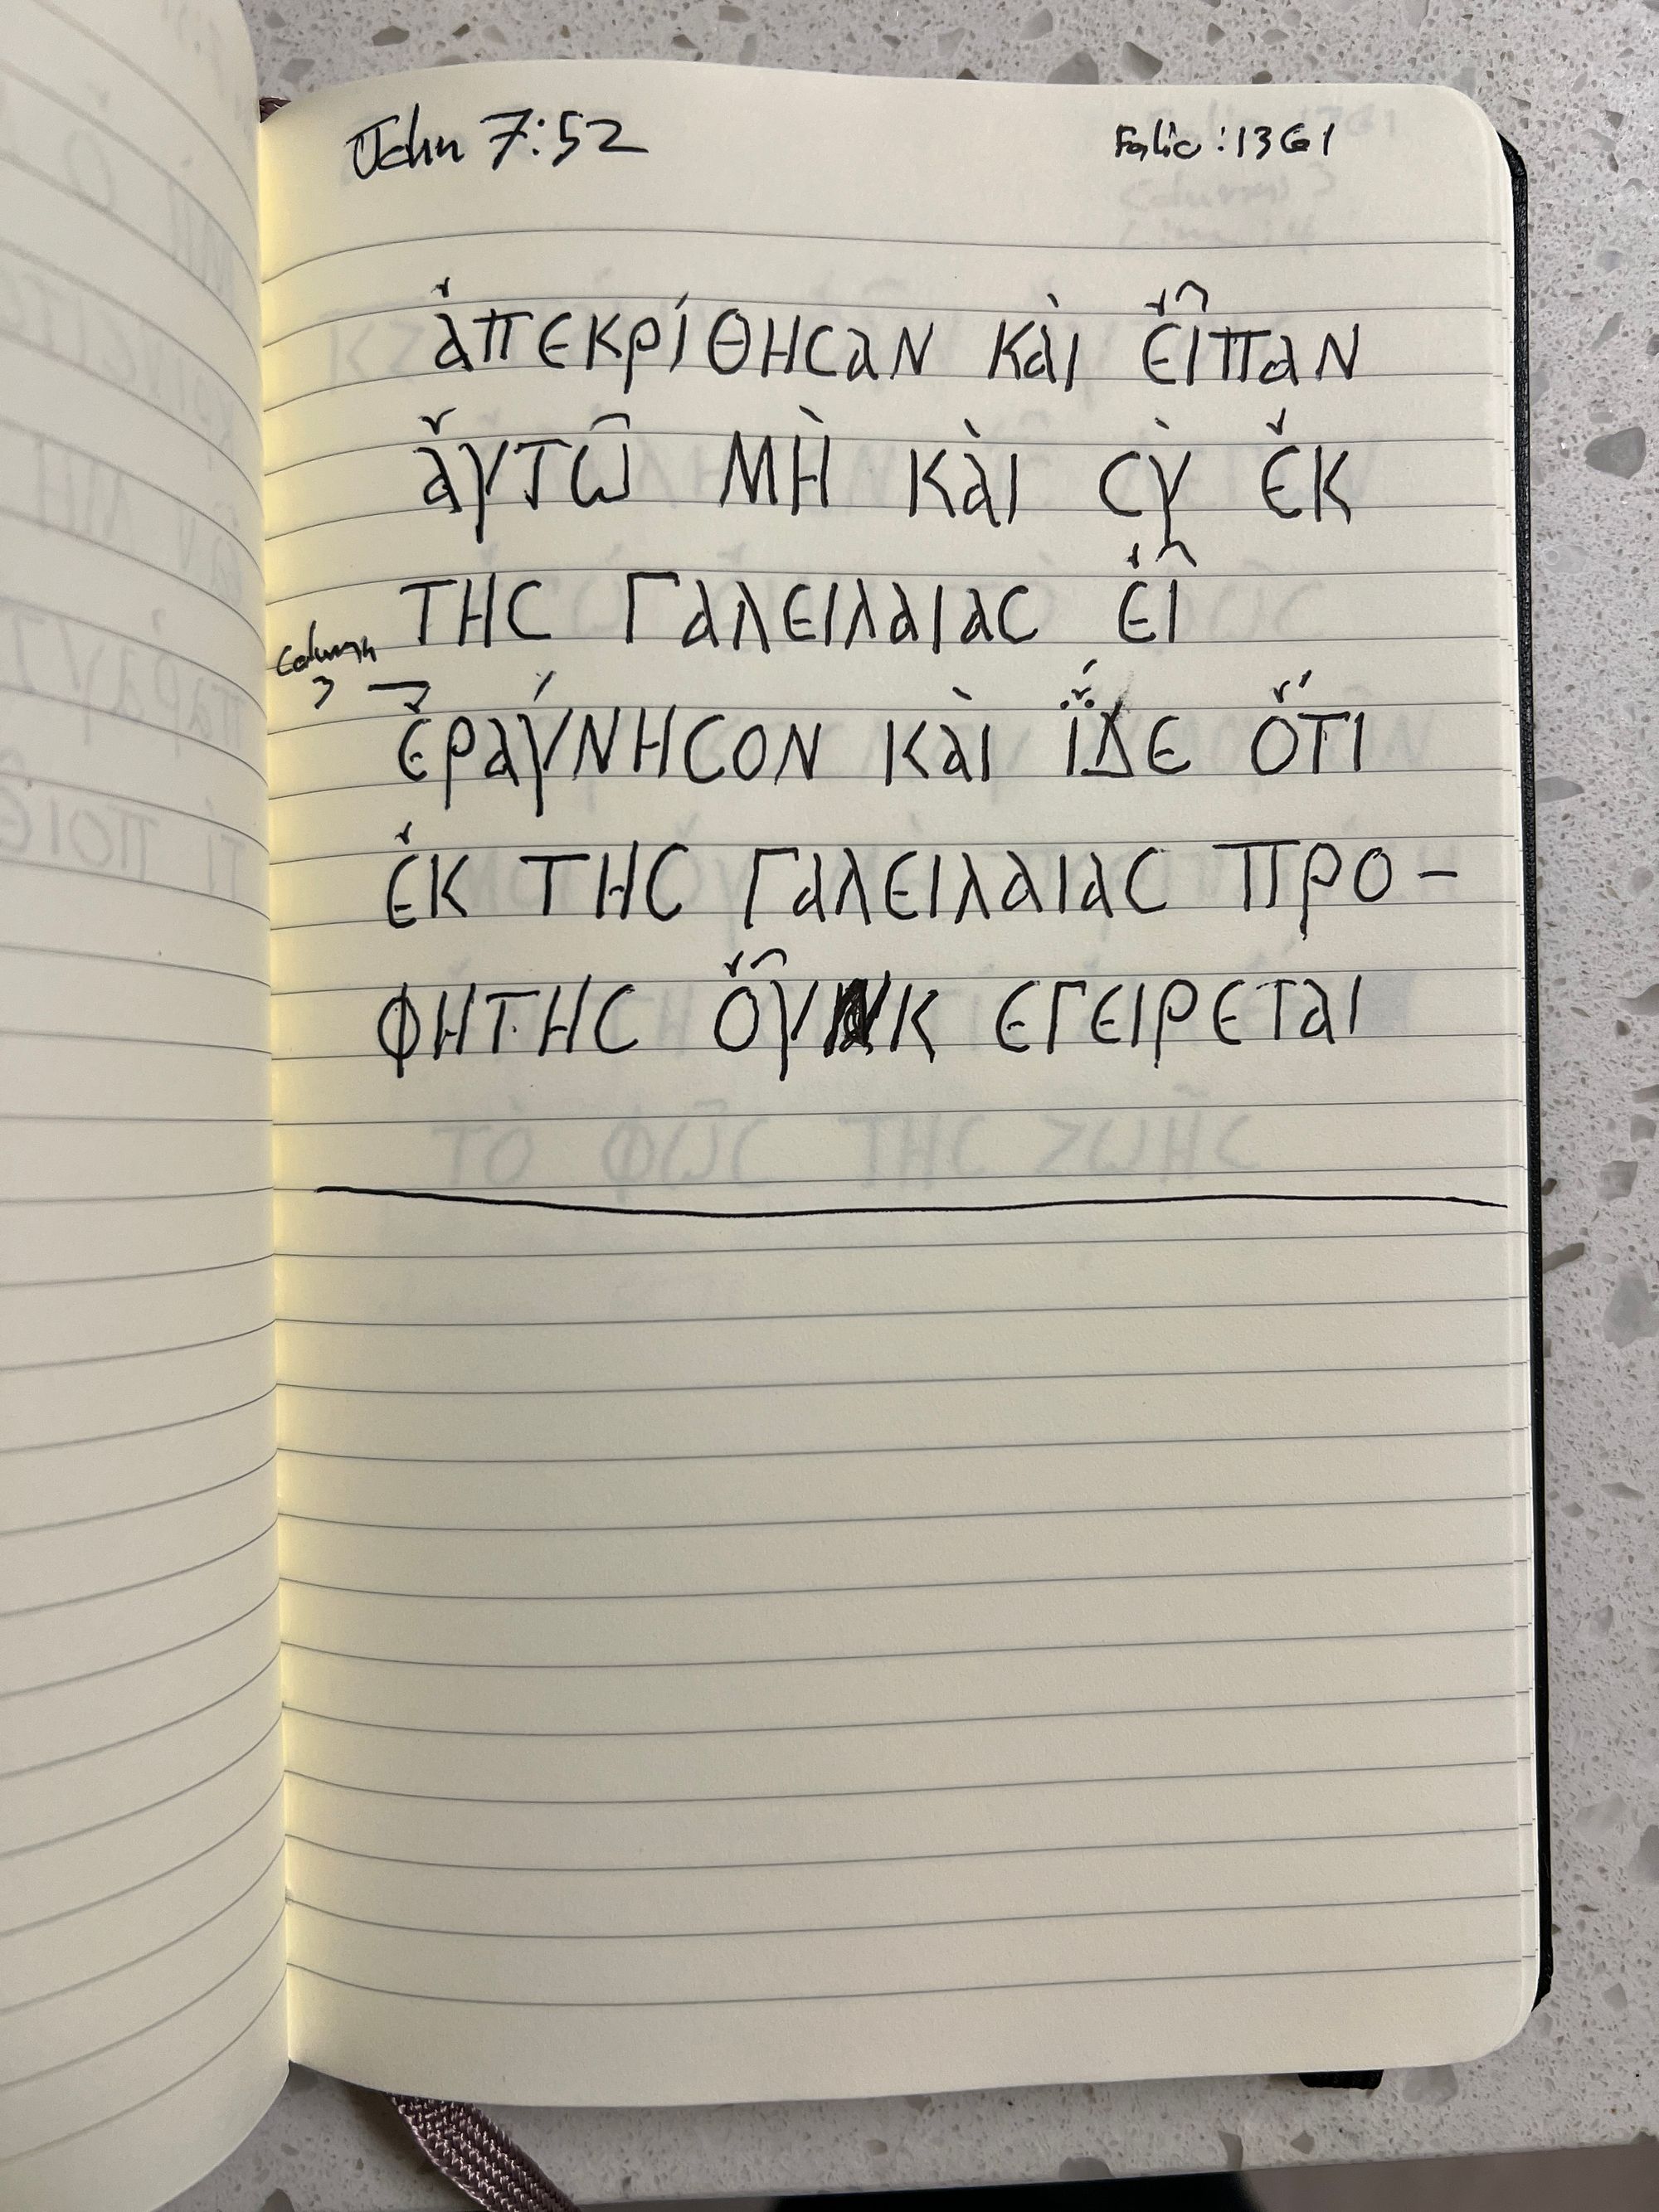 John 7:52
Folio: 1361
ἀπεκρίθηϲαν καὶ εἶπαν
ἀυτῶ μὴ καὶ ϲὺ ἐκ
τηϲ Γαλειλαιαϲ εἶ
Column
3 →
ἐραύνηϲον καὶ ἴ̈δε ὅτι
ἐκ τηϲ Γαλειλαιαϲ προ-
φητηϲ ὀῦκ εγειρεται